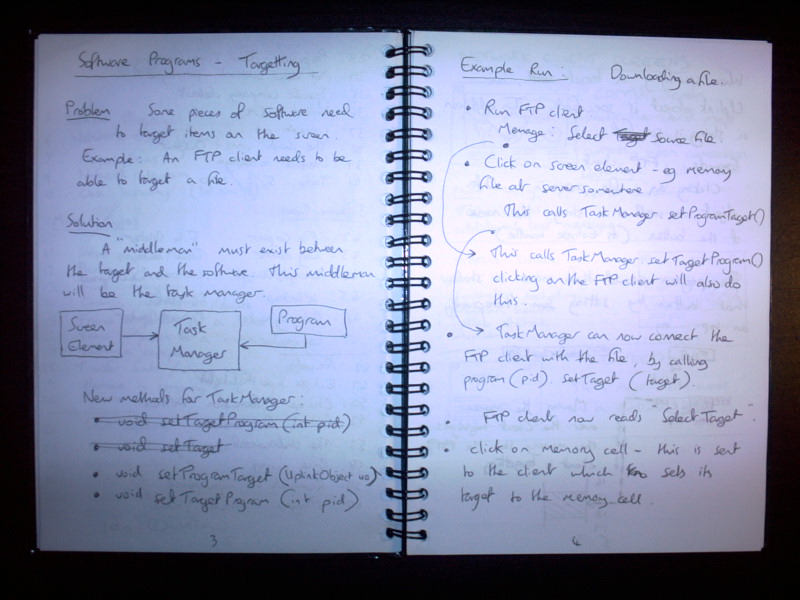 Software Programs - Targetting
Problem Some pieces of software need
to target items on the screen.
Example: An FTP client needs to be
able to target a file.
Solution
A "middleman" must exist between
the target and the software. This middleman
will be the task manager.
Screen
Element
Task
Manager
Program
New methods for TaskManager:
• void setTargetProgram (int pid)
• void setTarget
• void setProgramTarget (UplinkObject uo)
• void setTargetProgram (int pid)
3
Example Run: Downloading a file.
• Run FTP client
Message: Select Target source file.
• Click on screen element - eg memory
file at server somewhere
This calls TaskManager.setProgramTarget()
• This calls TaskManager.setTargetProgram()
clicking on the FTP client will also do
this.
• TaskManager can now connect the
FTP client with the file, by calling
program(pid).setTarget(target).
• FTP client now reads "Select Target".
• click on memory cell - this is sent
to the client which sets its
target to the memory cell.
4